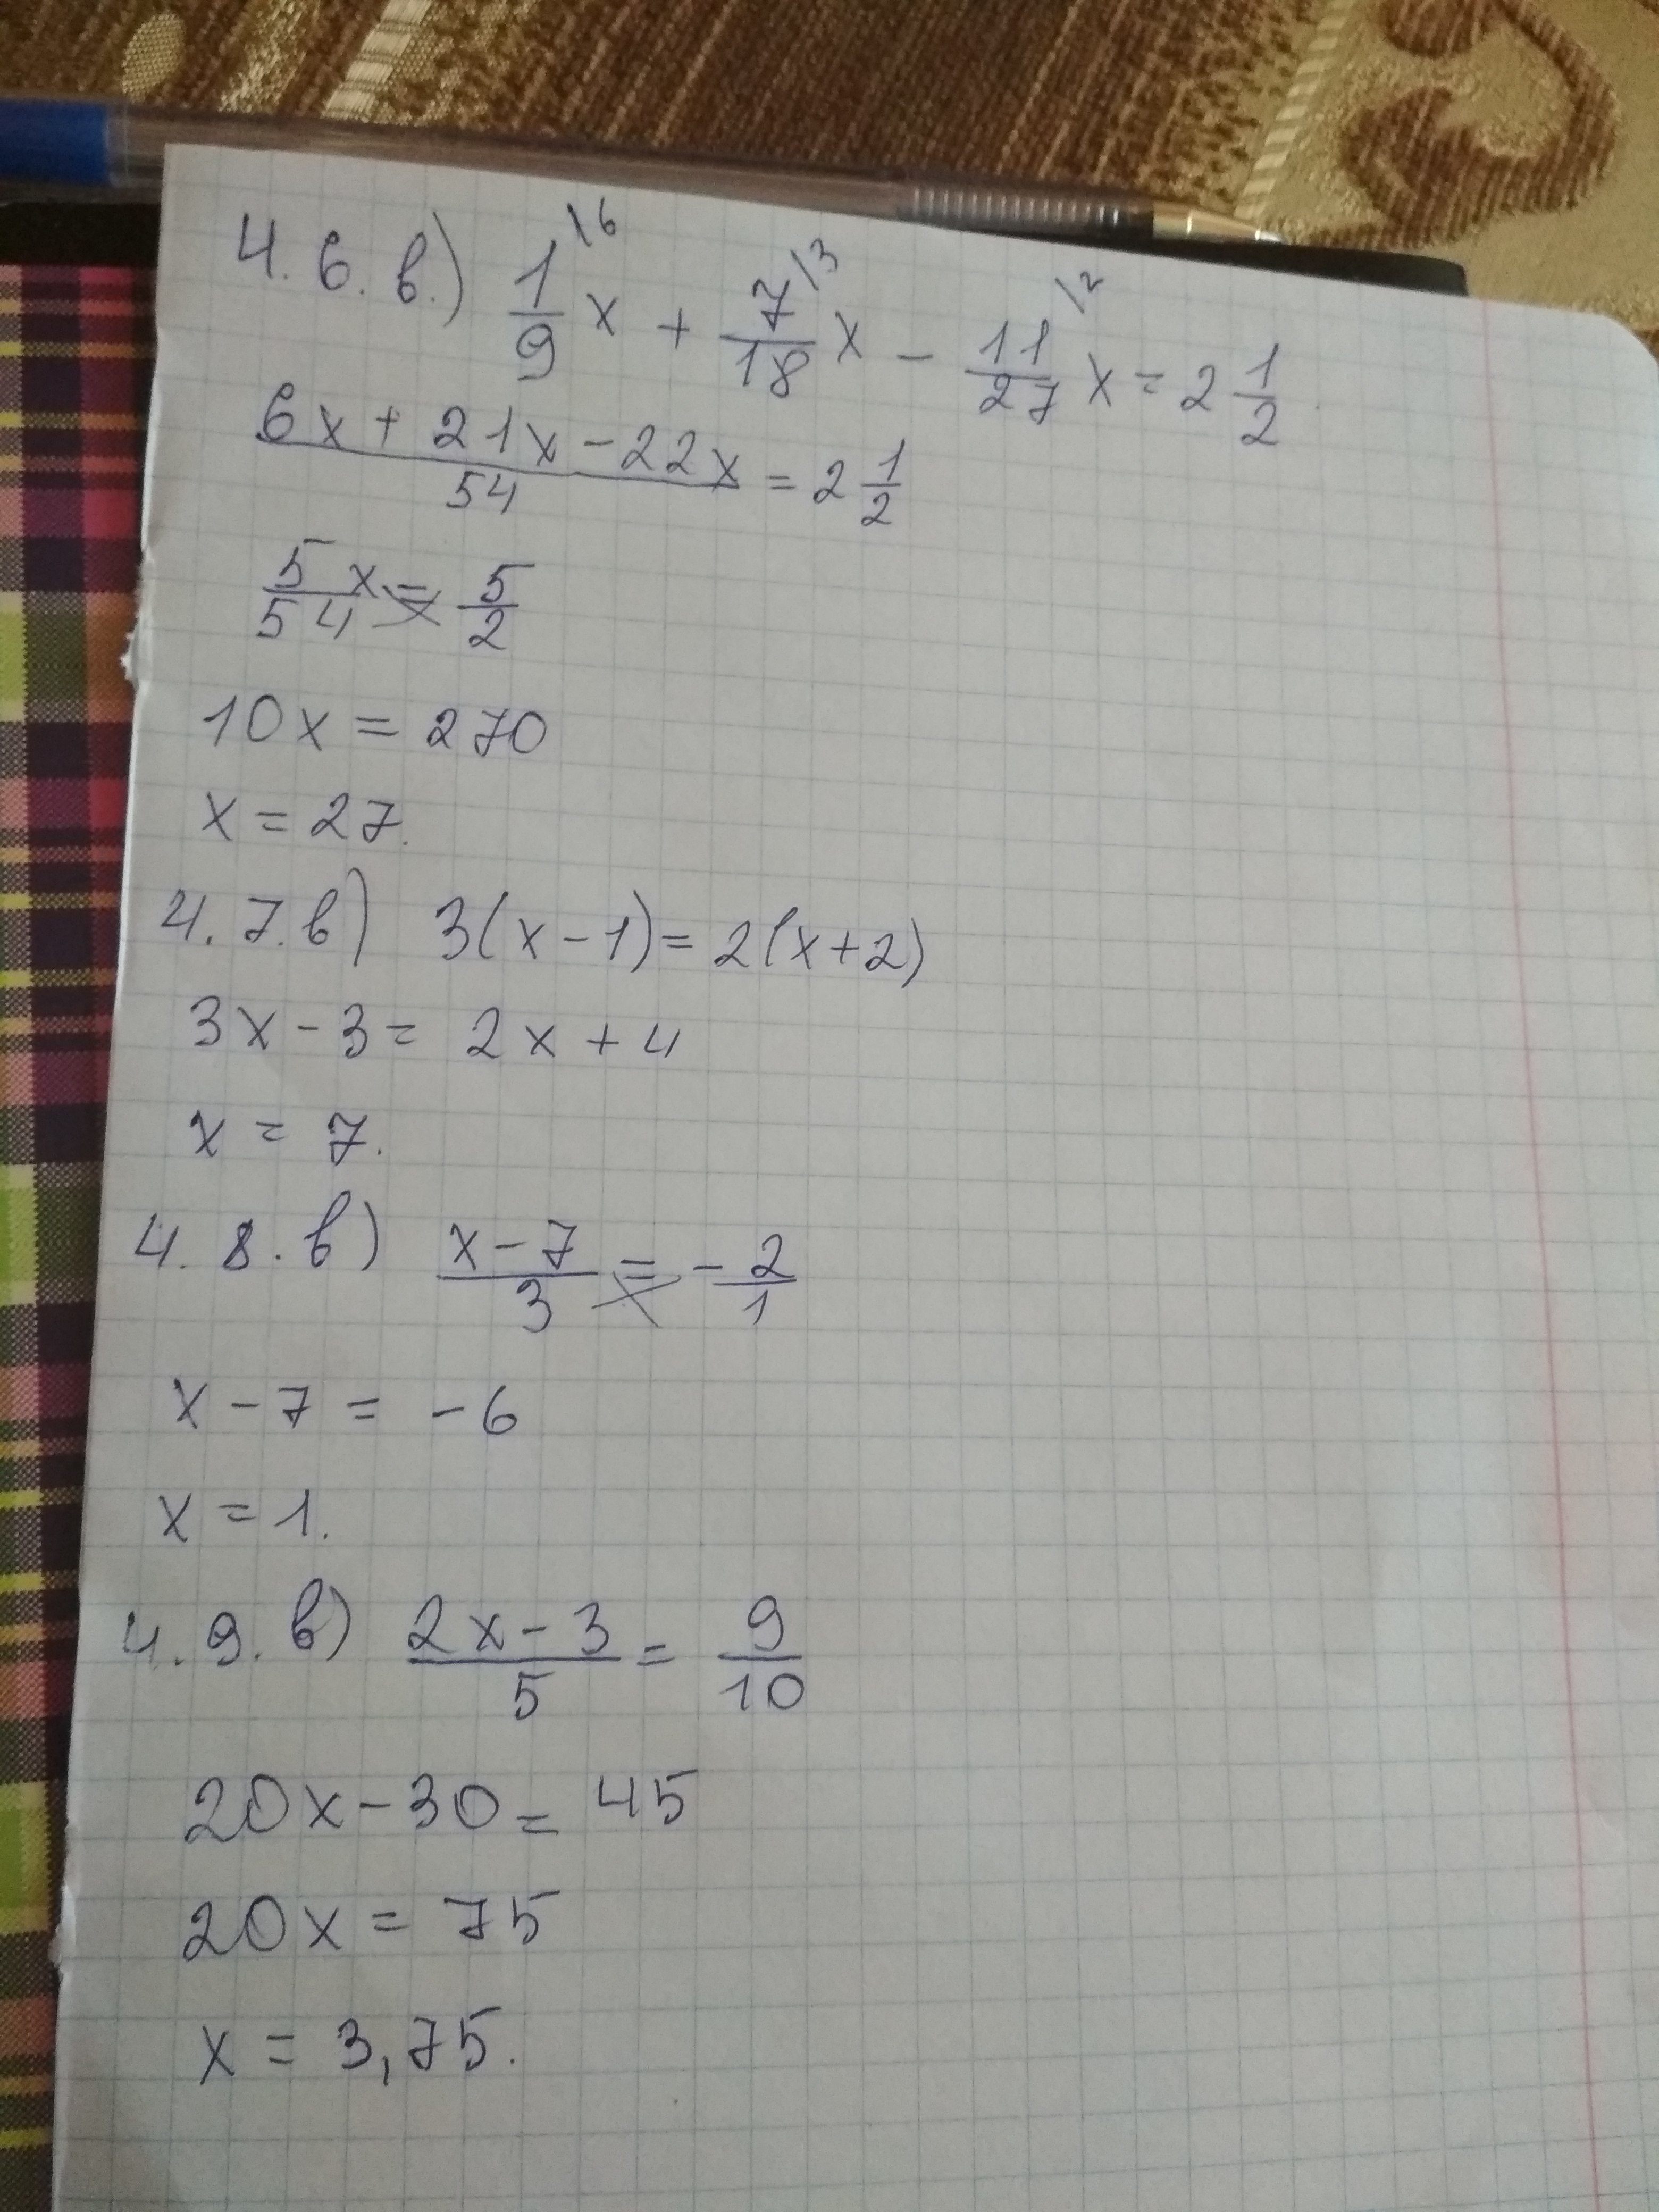 4.6.в.) 1/9 \6 x + 7/18 \3 x - 11/27 \2 x = 2 1/2.
(6x + 21x - 22x)/54 = 2 1/2
5/54 x = 5/2
10x = 270
x = 27.
4.7.в) 3(x-1) = 2(x+2)
3x - 3 = 2x + 4
x = 7.
4.8.в) (x-7)/3 = -2/1
x - 7 = -6
x = 1.
4.9.в) (2x-3)/5 = 9/10
20x - 30 = 45
20x = 75
x = 3,75.